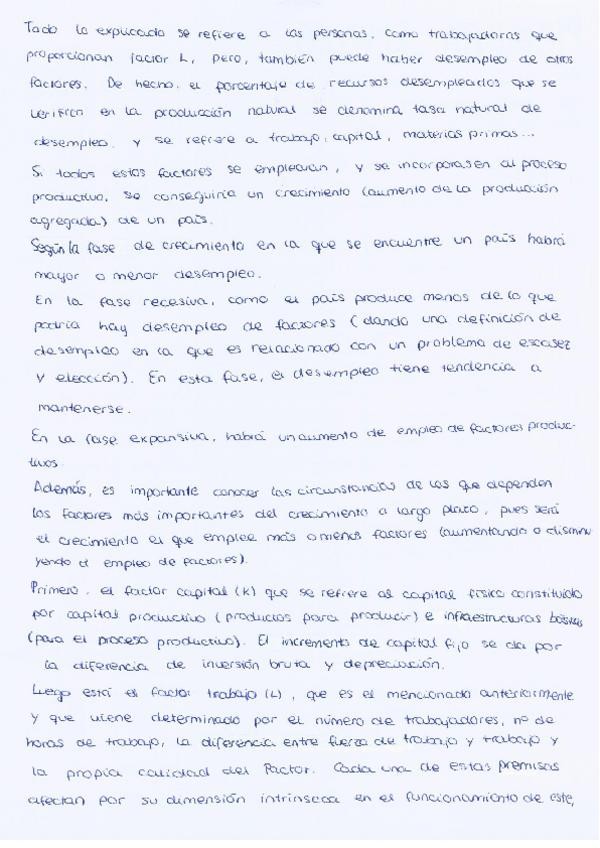 Todo lo explicado se refiere a las personas, como trabajadoras que
proporcionan factor L, pero, también puede haber desempleo de otros
factores. De hecho, el porcentaje de recursos desempleados que se
verifica en la producción natural se denomina tasa natural de
desempleo, y se refiere a trabajo, capital, materias primas...
Si todos estos factores se emplearan, y se incorporasen al proceso
productivo, se conseguiría un crecimiento (aumento de la producción
agregada) de un país.
Según la fase de crecimiento en la que se encuentre un país habrá
mayor o menor desempleo.
En la fase recesiva, como el país produce menos de lo que
podría hay desempleo de factores (dando una definición de
desempleo en la que es relacionado con un problema de escasez
y elección). En esta fase, el desempleo tiene tendencia a
mantenerse.
En la fase expansiva, habrá un aumento de empleo de factores produc-
tivos.
Además, es importante conocer las circunstancias de las que dependen
los factores más importantes del crecimiento a largo plazo, pues será
el crecimiento el que emplee más o menos factores (aumentando o disminu
yendo el empleo de factores).
Primero, el factor capital (K) que se refiere al capital físico constituido
por capital productivo (productos para producir) e infraestructuras básicas
(para el proceso productivo). El incremento de capital fijo se da por
la diferencia de inversión bruta y depreciación.
Luego está el factor trabajo (L), que es el mencionado anteriormente
y que viene determinado por el número de trabajadores, nº de
horas de trabajo, la diferencia entre fuerza de trabajo y trabajo y
la propia calidad del factor. Cada una de estas premisas
afectan por su dimensión intrínseca en el funcionamiento de este,